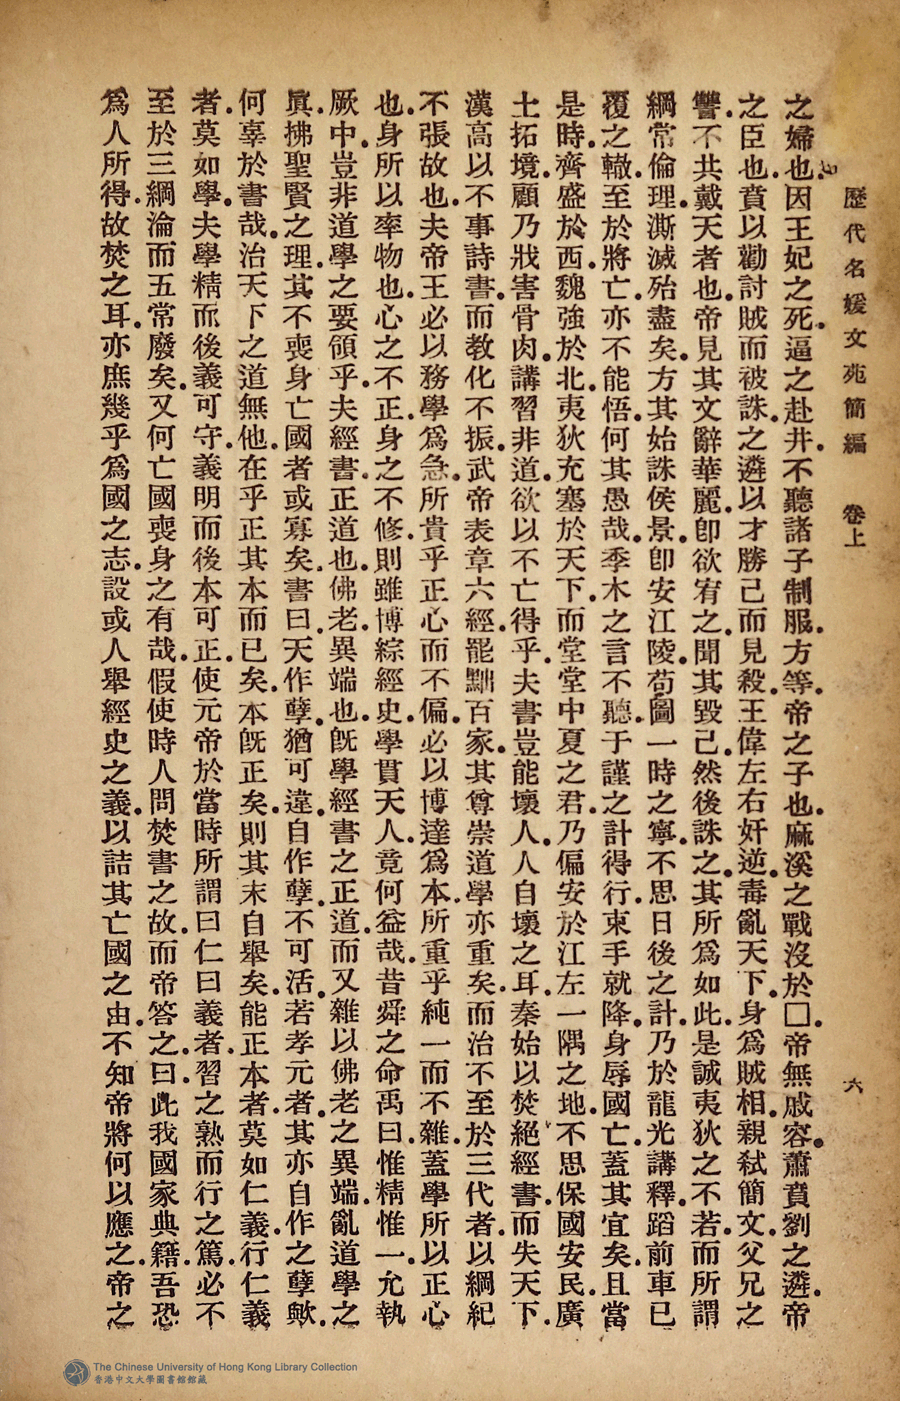 歷代名媛文苑簡編　卷上　六
之婦也因王妃之死逼之赴井不聽諸子制服方等帝之子也麻溪之戰沒於□帝無戚容蕭賁劉之遴帝
之臣也賁以勸討賊而被誅之遴以才勝己而見殺王偉左右奸逆毒亂天下身爲賊相親弒簡文父兄之
讐不共戴天者也帝見其文辭華麗卽欲宥之聞其毀己然後誅之其所爲如此是誠夷狄之不若而所謂
綱常倫理澌滅殆盡矣方其始誅侯景卽安江陵苟圖一時之寧不思日後之計乃於龍光講釋蹈前車已
覆之轍至於將亡亦不能悟何其愚哉季木之言不聽于謹之計得行束手就降身辱國亡蓋其宜矣且當
是時齊盛於西魏強於北夷狄充塞於天下而堂堂中夏之君乃偏安於江左一隅之地不思保國安民廣
土拓境顧乃戕害骨肉講習非道欲以不亡得乎夫書豈能壞人人自壞之耳秦始以焚絕經書而失天下
漢高以不事詩書而敎化不振武帝表章六經罷黜百家其尊崇道學亦重矣而治不至於三代者以綱紀
不張故也夫帝王必以務學爲急所貴乎正心而不偏必以博達爲本所重乎純一而不雜蓋學所以正心
也身所以率物也心之不正身之不修則雖博綜經史學貫天人竟何益哉昔舜之命禹曰惟精惟一允執
厥中豈非道學之要領乎夫經書正道也佛老異端也旣學經書之正道而又雜以佛老之異端亂道學之
眞拂聖賢之理其不喪身亡國者或寡矣書曰天作孽猶可違自作孽不可活若孝元者其亦自作之孽歟
何辜於書哉治天下之道無他在乎正其本而已矣本旣正矣則其末自舉矣能正本者莫如仁義行仁義
者莫如學夫學精而後義可守義明而後本可正使元帝於當時所謂曰仁曰義者習之熟而行之篤必不
至於三綱淪而五常廢矣又何亡國喪身之有哉假使時人問焚書之故而帝答之曰此我國家典籍吾恐
爲人所得故焚之耳亦庶幾乎爲國之志設或人舉經史之義以詰其亡國之由不知帝將何以應之帝之
The Chinese University of Hong Kong Library Collection
香港中文大學圖書館館藏